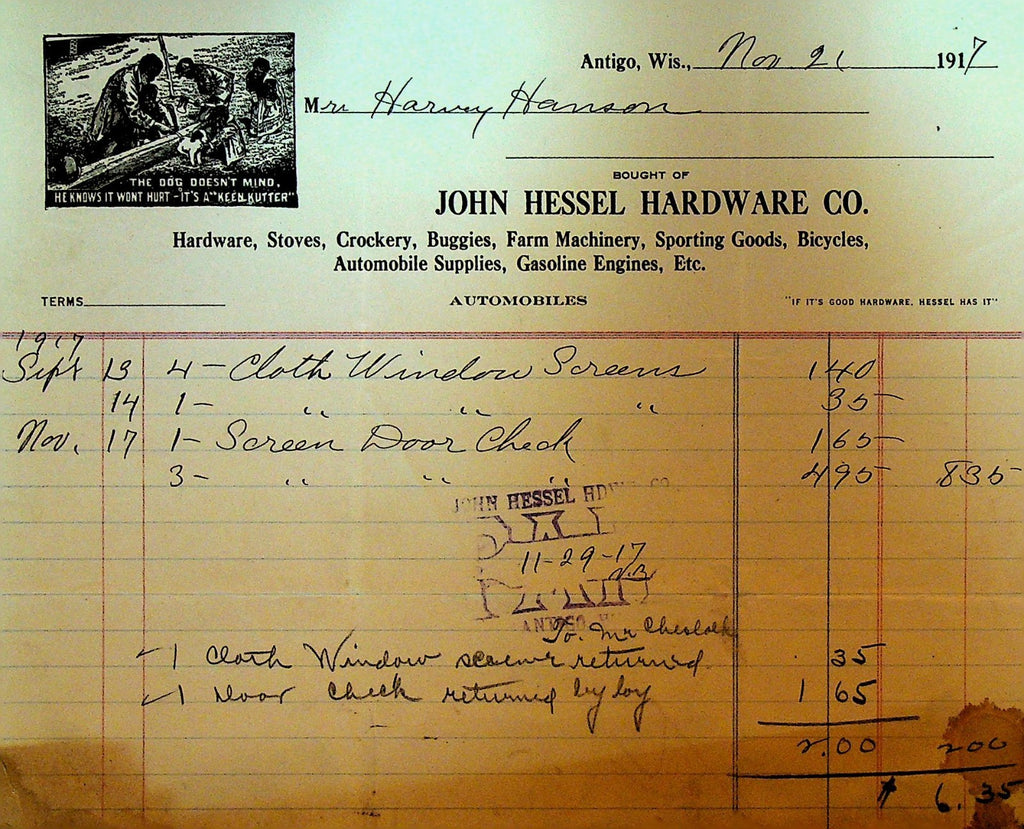 THE DOG DOESN'T MIND,
HE KNOWS IT WONT HURT - IT'S A "KEEN KUTTER"
Antigo, Wis., Nov 21 1917
Mrs Harvey Hanson
BOUGHT OF
JOHN HESSEL HARDWARE CO.
Hardware, Stoves, Crockery, Buggies, Farm Machinery, Sporting Goods, Bicycles,
Automobile Supplies, Gasoline Engines, Etc.
TERMS AUTOMOBILES "IF IT'S GOOD HARDWARE, HESSEL HAS IT"
1917
Sept 13 4 - Cloth Window Screens 1 40
14 1 - " " " 35
Nov. 17 1 - Screen Door Check 1 65
3 - " " " 4 95 8 35
JOHN HESSEL HDW. CO.
PAID
11-29-17
ANTIGO, W
To. Mr
✓1 Cloth Window screen returned 35
✓1 Door Check returned by boy 1 65
2.00 2 00
$ 6.35